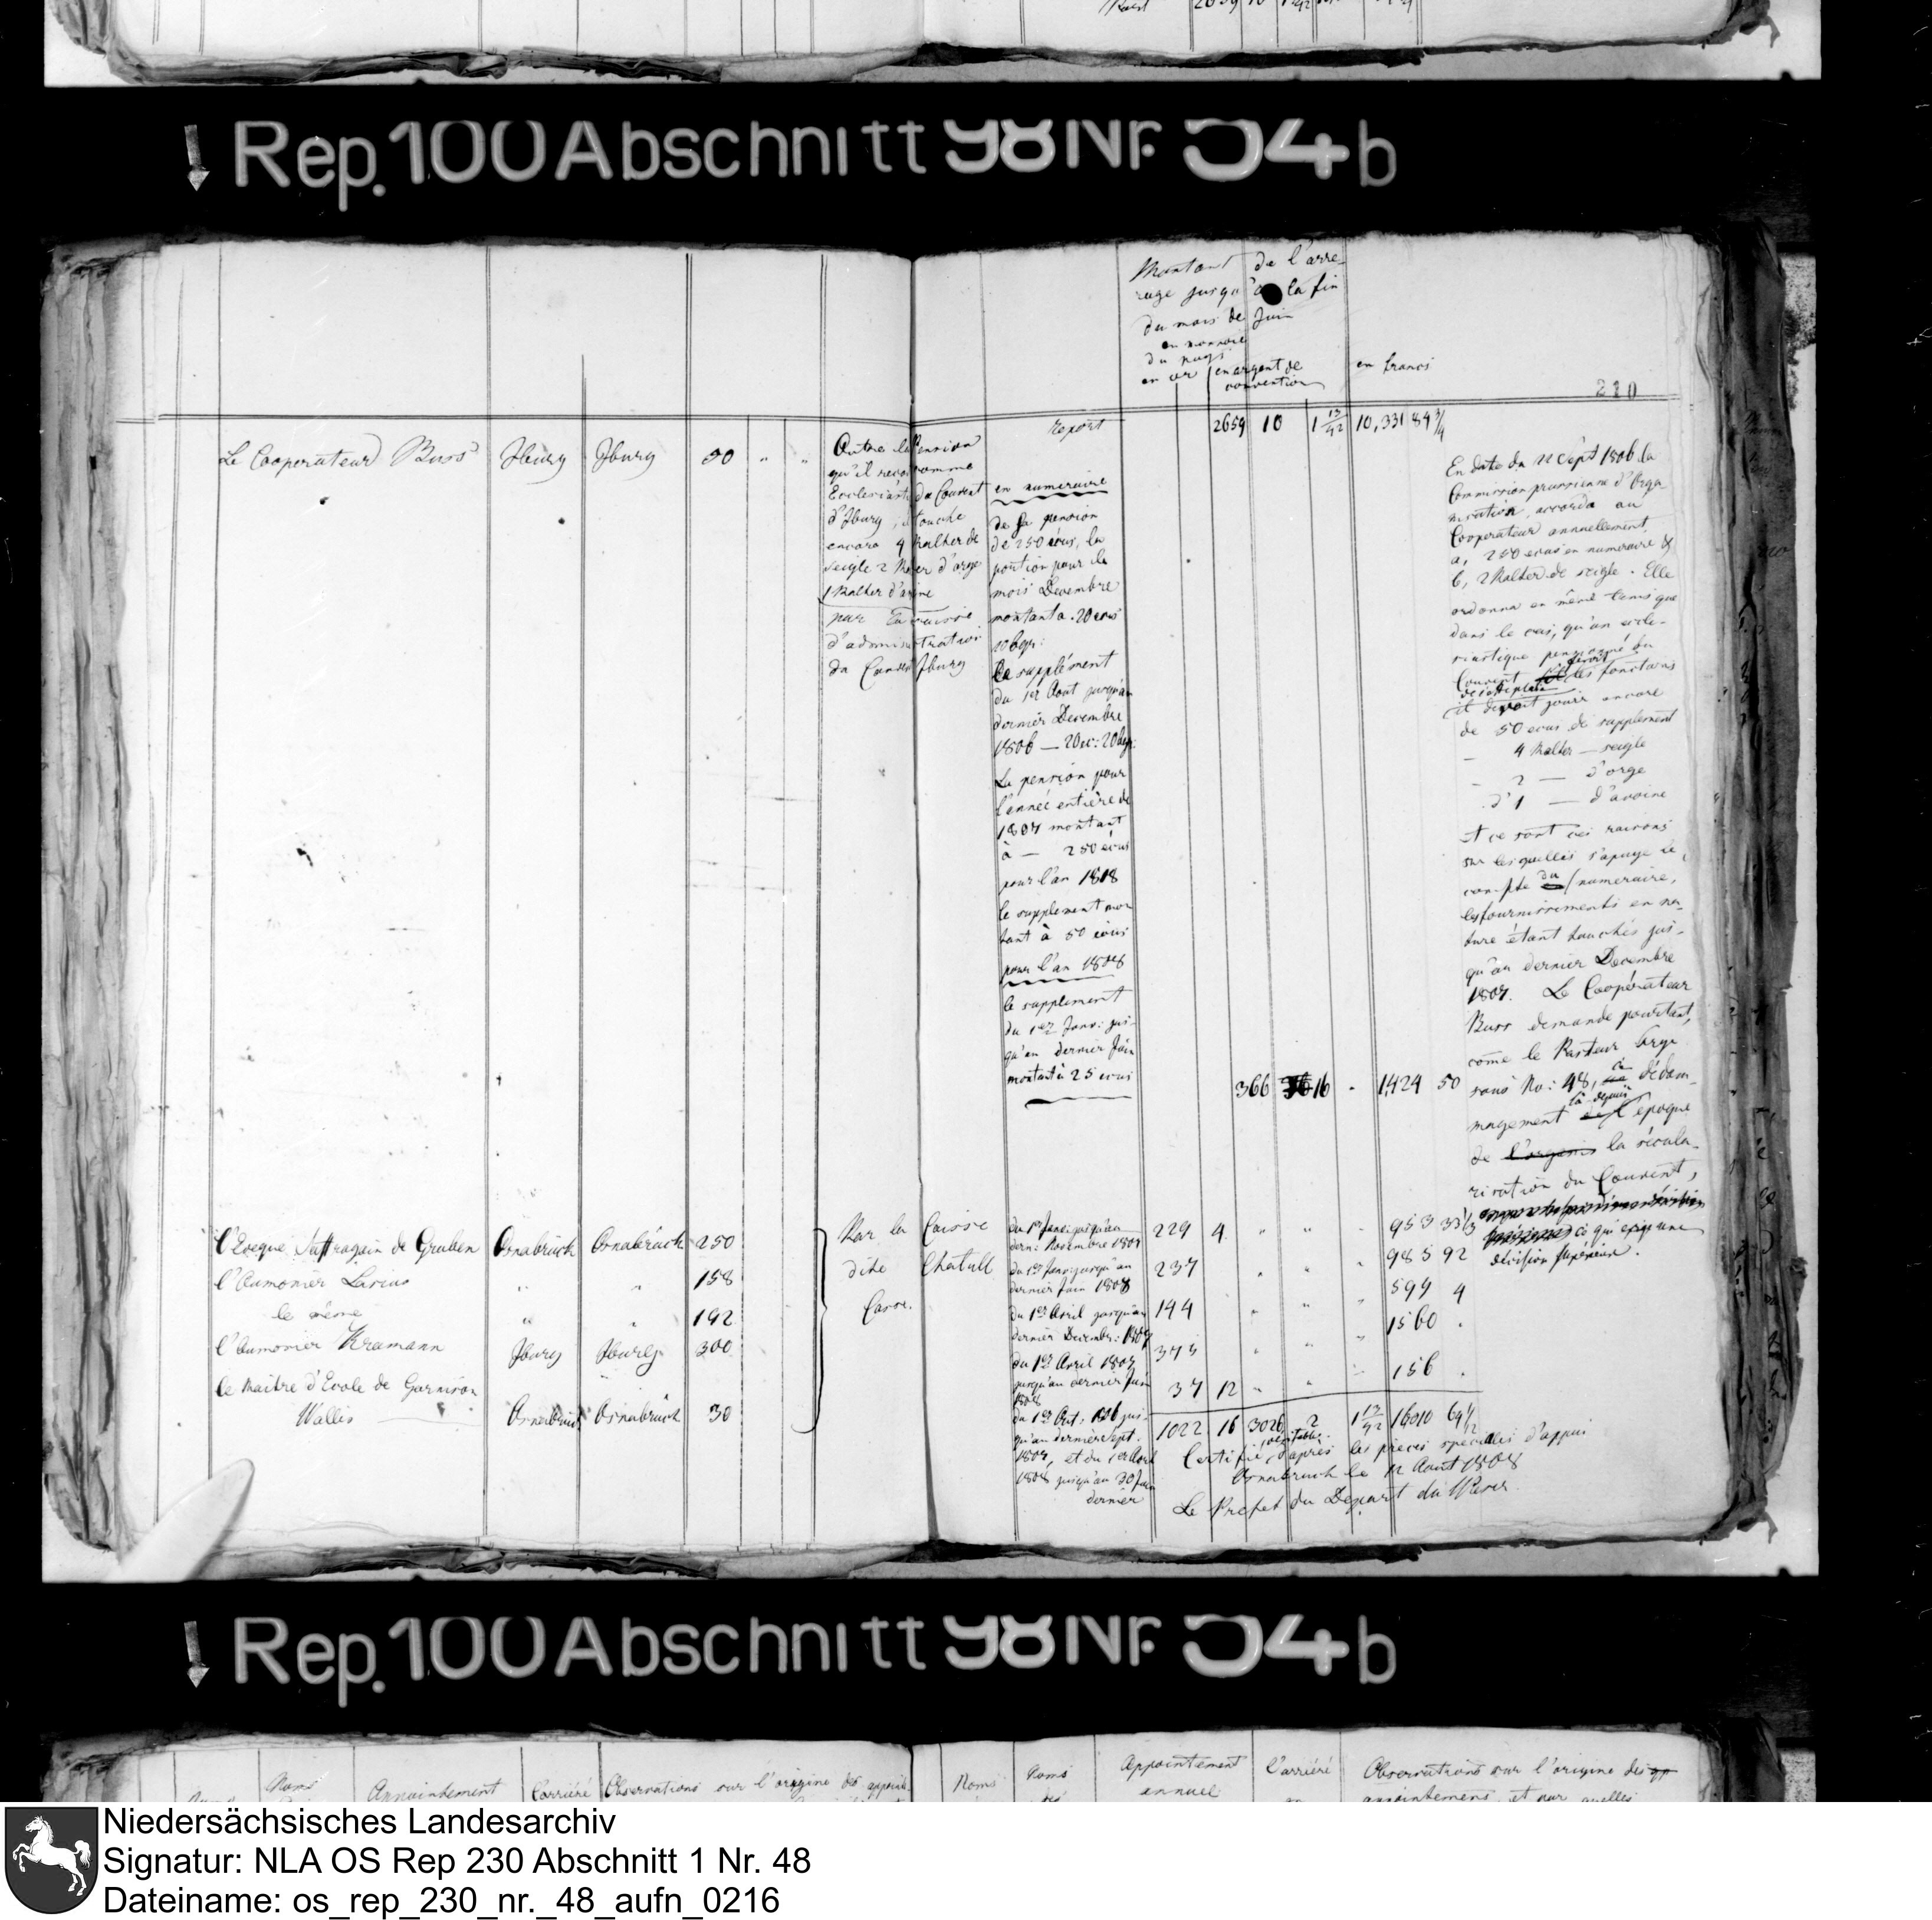 Rep. 100 Abschnitt 98 Nr. 54b
Montant de l'arre-
rage jusqu'à la fin
du mois de Juin
en monnoie
du pays
en or | en argent de
convention
en francs
210
report 2659 10 1 13/42 10,331 84 3/4
Le Cooperateur Buss Jburg Jburg 50 " "
Outre la Pension
qu'il reçoit comme
Ecclesiast: du Couvent
d'Jburg, il touche
encore 4 Malter de
seigle 2 Malter d'orge
1 Malter d'avoine
par la caisse
d'administration
du Couvent Jburg
en numeraire
de sa pension
de 250 écus, la
portion pour le
mois Decembre
montant a 20 ecus
20 bgr:
Le supplément
du 1er Aout jusqu'au
dernier Decembre
1806 — 20 ec: 20 bgr:
La pension pour
l'année entière de
1807 montant
à — 250 écus
pour l'an 1808
le supplement mon
tant à 50 écus
pour l'an 1808
le supplement
du 1er Janv: jus-
qu'au dernier Juin
montant à 25 ecus
366 16 - 1,424 50
En date du 22 Sept 1806 la
Commission prussienne d'Orga-
nisation, accorda au
Cooperateur annuellement
a, 250 ecus en numeraire &
b, 2 Malter de seigle. Elle
ordonna en même tems que
dans le cas, qu'un eccle-
siastique pensionné du
Couvent feroit les fonctions
il devoit jouir encore
de 50 ecus de supplement
— 4 Malter — seigle
- 2 — d'orge
d° 1 — d'avoine
et ce sont ces raisons
sur lesquelles s'apuye le
compte du numeraire,
les fournissements en na-
ture étant touchés jus-
qu'au dernier Decembre
1807. Le Coopérateur
Buss demande pourtant,
come le Pasteur
sous No: 48, un dédom-
magement là depuis l'epoque
de la sécula-
risation du Couvent,
ce qui exige une
décision supérieure.
l'Eveque Suffragain de Gruben Osnabrück Osnabrück 250
l'Aumonier Larius " " 158
le même " " 192
l'Aumonier Kramann Jburg Jburg 300
le Maitre d'Ecole de Garnison
Wallis — Osnabrück Osnabrück 30
Par la Caisse
dite Chatull
Casse.
du 1er Janv: jusqu'au
dern: Novembre 1807
229 4 " " - 953 33 1/3
du 1er Janv: jusqu'au
dernier Juin 1808
237 " " " 985 92
du 1er Avril jusqu'au
dernier Decembr: 1807
144 " " " 599 4
du 1er Avril 1807
jusqu'au dernier Juin
1808
375 " " " 1560 .
du 1er Oct: 1806 jus-
qu'au dernier Sept.
1807, et du 1er Avril
1808 jusqu'au 30 Juin
dernier
37 12 " " - 156 .
1022 16 3026 2 1 13/42 16,010 64 1/12
Certifié véritable d'après les pieces speciales d'appui
Osnabruck le 12 Aout 1808
Le Prefet du Depart du Weser.
Rep. 100 Abschnitt 98 Nr. 54b
Noms
Appointement
l'arriéré
Observations sur l'origine des appoint-
Noms
Noms
des
Appointement
annuel
l'arriéré
en
Observations sur l'origine des
appointemens, et par quelles
Niedersächsisches Landesarchiv
Signatur: NLA OS Rep 230 Abschnitt 1 Nr. 48
Dateiname: os_rep_230_nr._48_aufn_0216